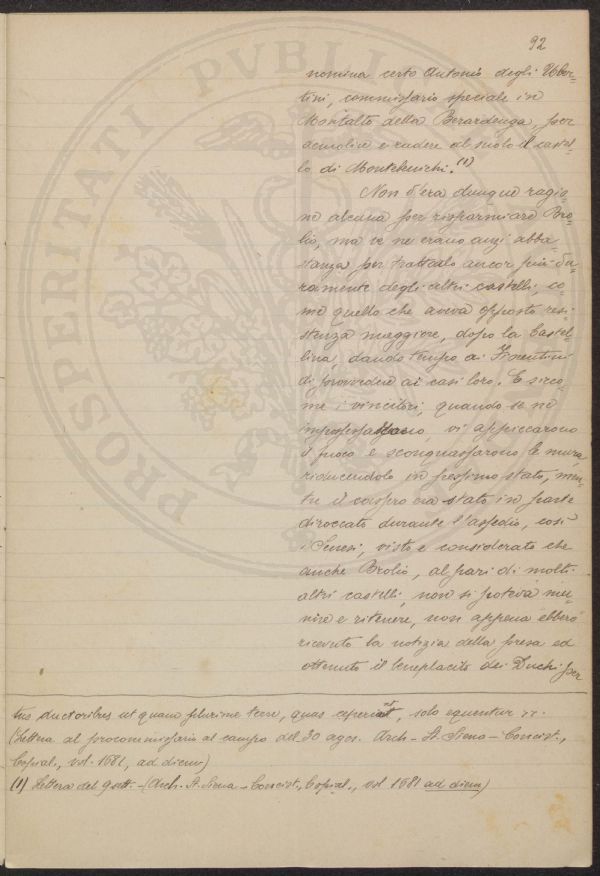 92
nomina certo Antonio degli Uber-
tini, commissario speciale in
Montalto della Berardenga, per
demolire e radere al suolo il castel-
lo di Monteluichi. (1)
Non v'era dunque ragio-
ne alcuna per risparmiare Bro-
lio, ma ve ne erano anzi abba-
stanza per trattarlo ancor più du-
ramente degli altri castelli, co-
me quello che aveva opposto resi-
stenza maggiore, dopo la Castel-
lina, dando tempo ai Fiorentini
di provvedere ai casi loro. E sicco-
me i vincitori, quando se ne
impossessarono, vi appiccarono
il fuoco e sconquassarono le mura,
riducendolo in pessimo stato, men-
tre il cassero era stato in parte
diroccato durante l'assedio, così
i Senesi, visto e considerato che
anche Brolio, al pari di molti
altri castelli, non si poteva mu-
nire e ritenere, non appena ebbero
ricevuto la notizia della presa ed
ottenuto il beneplacito dei Duchi per
tus ductoribus ut quam plurime terre, quas ceperint, solo equentur
(Lettera al procommissario al campo del 30 agos. Arch. St. Siena - Concist.,
Copial., vol. 1681, ad diem)
(1) Lettera del 9 sett. - (Arch. St. Siena - Concist., Copial., vol 1681 ad diem)
PROSPERITATI PVBLI